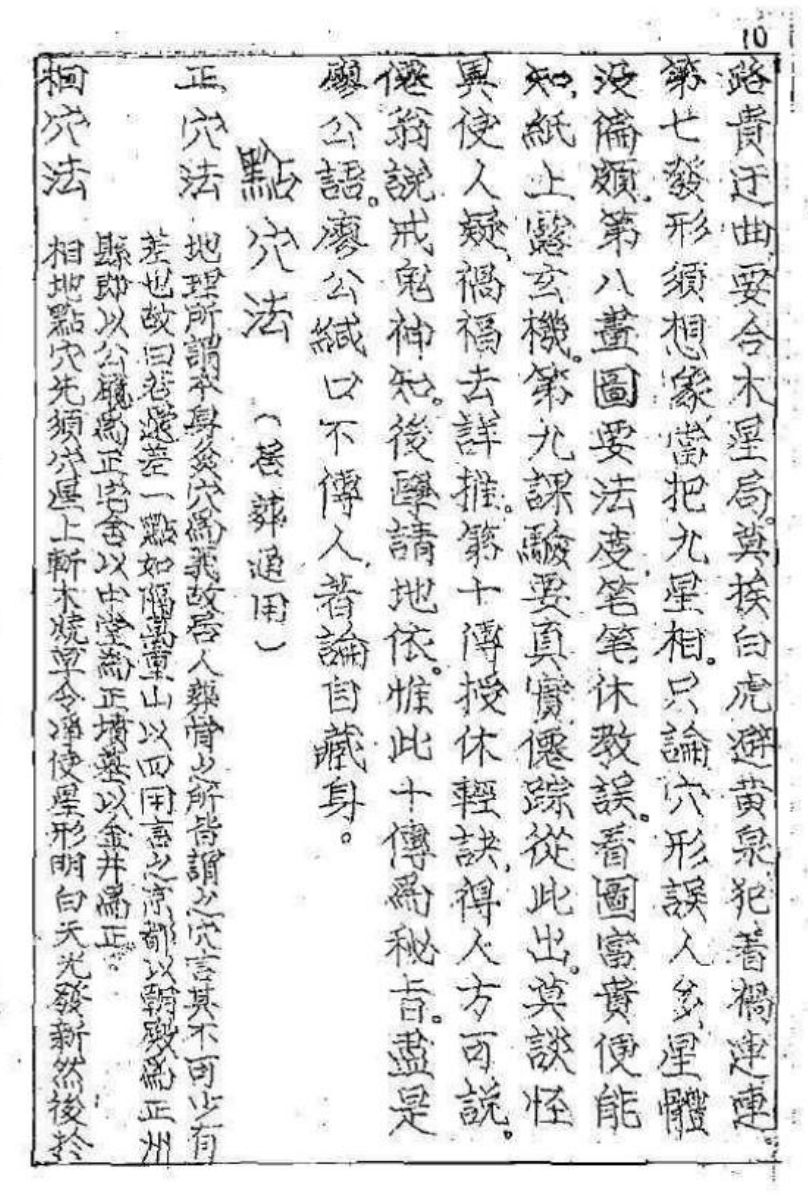 10
路貴迂曲。要合木星局。莫挨白虎避黃泉。犯着禍連連。
第七發形須想象。當把九星相。只論穴形誤人多。星體
没偏頗。第八畫圖要法度。笔笔休教誤。看圖富貴便能
知。紙上露玄機。第九課驗要真實。僊踪從此出。莫談怪
異使人疑。禍福去詳推。第十傳授休輕訣。得人方可說。
僊翁説戒鬼神知。後學請地依。惟此十傳為秘旨。盡是
廖公語。廖公緘口不傳人。著論自藏身。
點穴法 (居葬通用)
正穴法 地理所謂本身灸穴為義故居人葬骨之所皆謂之穴言其不可少有
差也故曰若還差一點如隔萬重山以四用言之京都以朝殿為正州
縣即以公廳為正宅舍以中堂為正墳墓以金井為正。
相穴法 相地點穴先須穴星上斬木燒草令凈使星形明白天光發新然後於